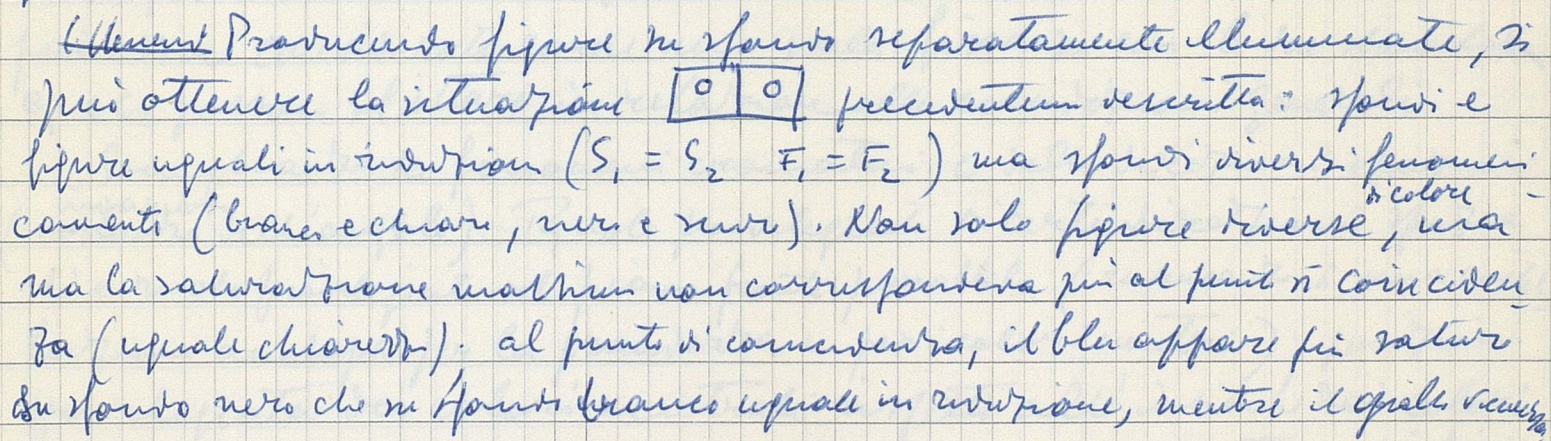 Producendo figure su sfondo separatamente illuminate, si
può ottenere la situazione precedentem descritta: sfondi e
figure uguali in riduzion (S₁ = S₂ F₁ = F₂) ma sfondi diversi fenomeni
camente (bianco e chiaro, nero e scuro). Non solo figure diverse di colore, ma
ma la saturazione massima non corrispondeva più al punto di coinciden
za (uguale chiarezza). al punto di coincidenza, il blu appare più saturo
su sfondo nero che su sfondo bianco uguale in riduzione, mentre il giallo viceversa